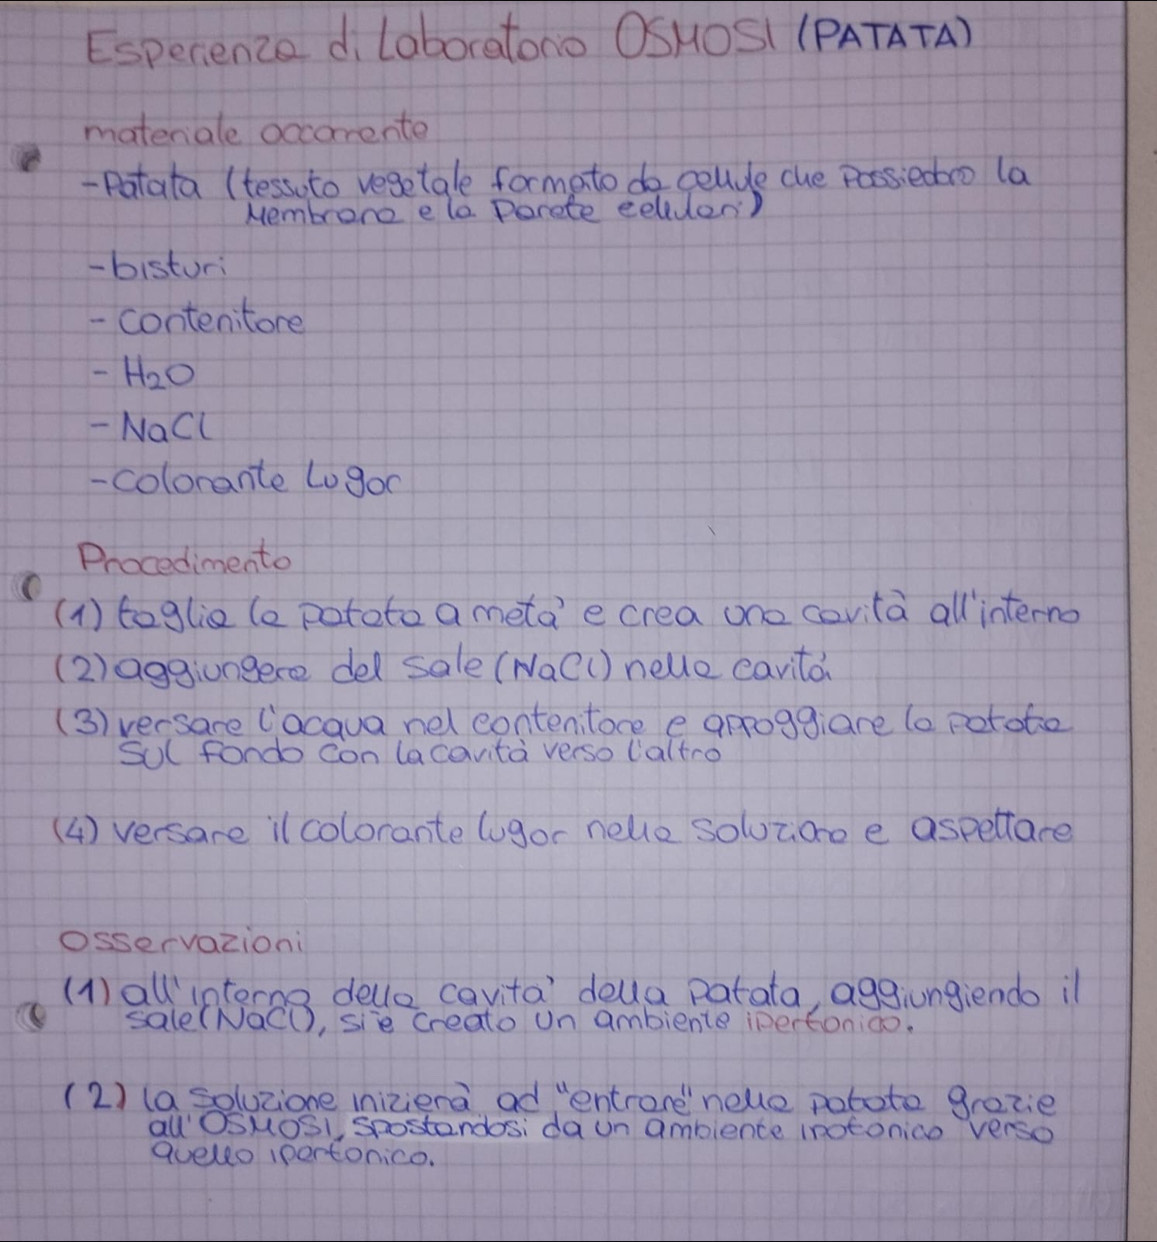 Esperienza di Laboratorio OSMOSI (PATATA)
materiale occorrente
- Patata (tessuto vegetale formato da cellule che possiedono la
membrana e la parete cellulari)
- bisturi
- contenitore
- H2O
- NaCl
- colorante Lugor
Procedimento
(1) taglia la patata a metà e crea una cavità all'interno
(2) aggiungere del sale (NaCl) nella cavità
(3) versare l'acqua nel contenitore e appoggiare la patata
sul fondo con la cavità verso l'altro
(4) versare il colorante lugor nella soluzione e aspettare
Osservazioni
(1) all'interno della cavità della patata, aggiungiendo il
sale (NaCl), si è creato un ambiente ipertonico.
(2) la soluzione inizierà ad "entrare" nella patata grazie
all'OSMOSI, spostandosi da un ambiente ipotonico verso
quello ipertonico.